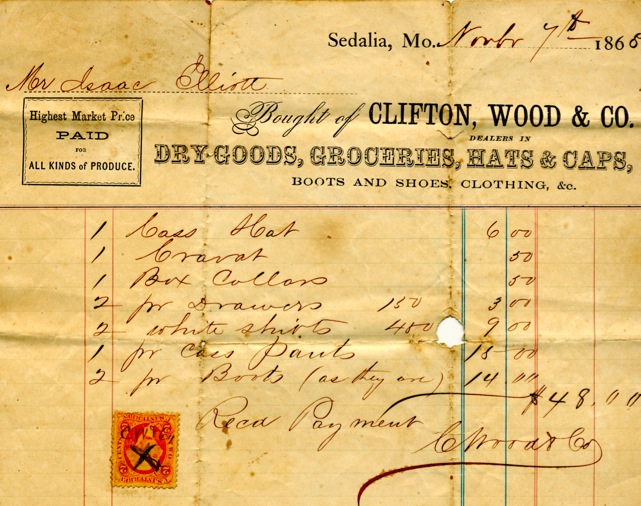 Sedalia, Mo. Novbr 7th 186
Mr Isaac Elliott
Highest Market Price
PAID
FOR
ALL KINDS of PRODUCE.
Bought of CLIFTON, WOOD & CO.
DEALERS IN
DRY-GOODS, GROCERIES, HATS & CAPS,
BOOTS AND SHOES, CLOTHING, &c.
1 Cass Hat 6 00
1 Cravat 50
1 Box Collars 50
2 pr Drawers 150 3 00
2 white shirts 9 00
1 pr Cass Pants 15 00
2 pr Boots (as they are) 14 "
$48.""
Recd Payment
C Wood & Co